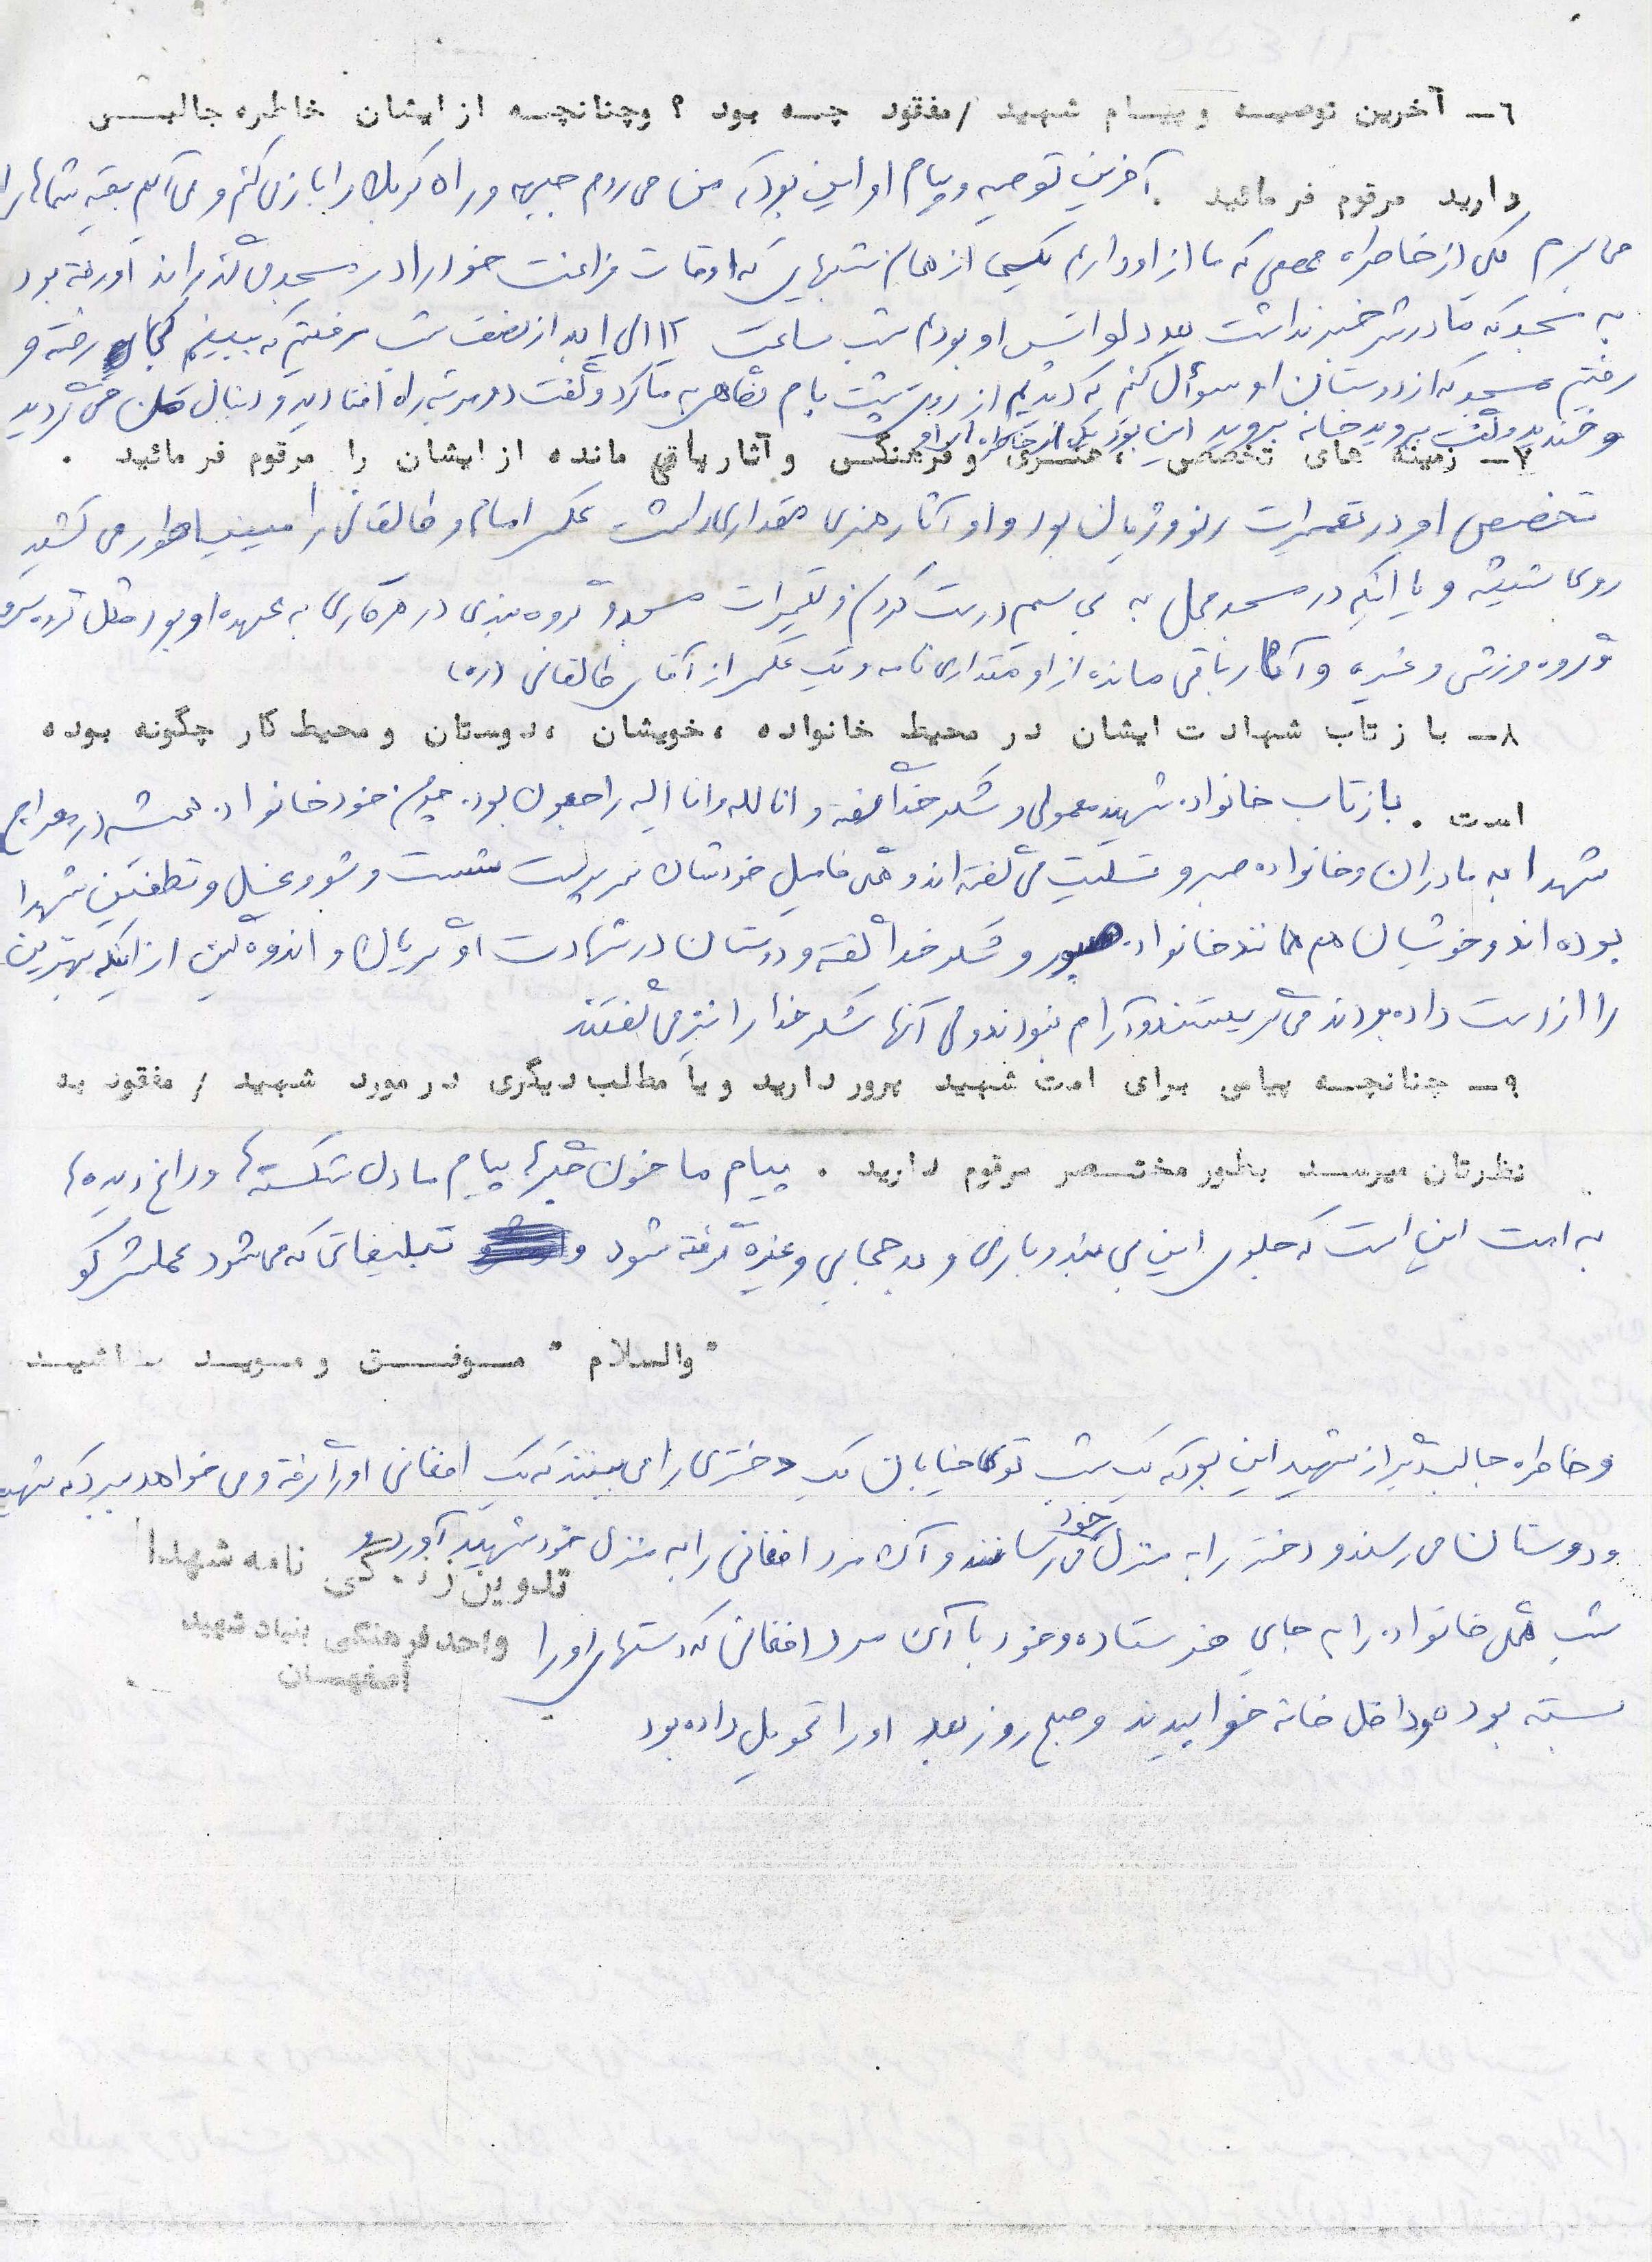 ۶ـ آخرین توصیه و پیام شهید /مفقود چه بود ؟ وچنانچه از ایشان خاطره جالبی
دارید مرقوم فرمائید . آخرین توصیه و پیام او این بود که من می روم جبهه و راه کربلا را باز می کنم و می آیم بقیه شماها را
می برم یکی از خاطره که ما از او داریم یکی از همان شبهایی که اوقات فراغت خود را در مسجد می گذراند رفته بود
به مسجد که مادرش خبر نداشت بعد دلواپس او بودم شب ساعت ۱۲ الی ۱ بعد از نصف شب رفتیم که ببینیم کجا رفته و
رفتیم مسجد که از دوستان او سوال کنم که دیدیم از روی پشت بام نگاهی به ما کرد و گفت دو مرتبه راه افتادید و دنبال من می گردید
و خندید و گفت بروید خانه بروید این بود یک از خاطره از او
۷ـ زمینه های تخصصی ، هنری وفرهنگی وآثار باقی مانده از ایشان را مرقوم فرمائید .
تخصص او در تعمیرات رنو و ژیان بود و او آثار هنری مقداری داشت عکس امام و طالقانی را می کشید
روی شیشه و یا اینکه در مسجد محل به بی سیم درست کردن و تعمیرات مسجد و گروه بندی در هر کاری به عهده او بود مثل گروه سرود
و گروه ورزشی و غیره و آثار باقی مانده از او مقداری نامه و یک عکس از آقای طالقانی (ره)
۸ـ بازتاب شهادت ایشان در محیط خانواده ،خویشان ،دوستان ومحیط کار چگونه بوده
است . بازتاب خانواده شهید معمولی و شکر خدا گفته و انا لله و انا الیه راجعون بود. چون خود خانواده همیشه در معراج
شهدا به مادران و خانواده صبر و تسلیت می گفته اند و همه فامیل خودشان سرپرست شست و شو و غسل و تکفین شهدا
بوده اند و خویشان هم همانند خانواده صبور و شکر خدا گفته و دوستان در شهادت او گریان و اندوهگین از اینکه بهترین
را از دست داده بودند می گریستند و آرام نبودند ولی آنها شکر خدا را نیز می گفتند
۹ـ چنانچه پیامی برای امت شهید پرور دارید ویا مطالب دیگری در مورد شهید / مفقود به
نظرتان میرسد بطور مختصر مرقوم دارید . پیام ما خون جگرها پیام ما دل شکسته ها و داغ دیده ها
به امت این است که جلوی این بی بند و باری و بد حجابی و غیره گرفته شود و تبلیغاتی که می شود عملش کو
" والسلام " موفق و موید باشید
و خاطره جالب دیگر از شهید این بود که یک شب توی خیابان یک دختری را می بینند که یک افغانی او را گرفته و می خواهد ببرد که شهید
و دوستان می رسند و دختر را به منزل خود می رسانند و آن مرد افغانی را به منزل خود شهید آورد و
شب همه خانواده را به جایی فرستاده و خود با آن مرد افغانی که دستهای او را
بسته بود داخل خانه خوابیدند و صبح روز بعد او را تحویل داده بود
تدوین زندگی نامه شهدا
واحد فرهنگی بنیاد شهید
اصفهان